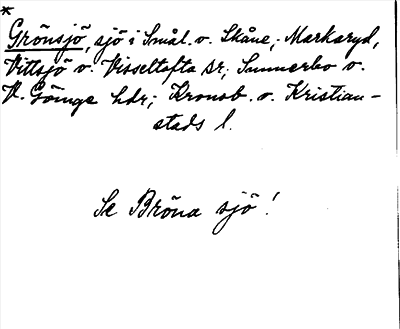 *
Grönsjö, sjö i Smål. o. Skåne; Markaryd,
Vittsjö o. Visseltofta sr; Sunnerbo o.
V. Göinge hdr; Kronob. o. Kristian-
stads l.
Se Bröna sjö!